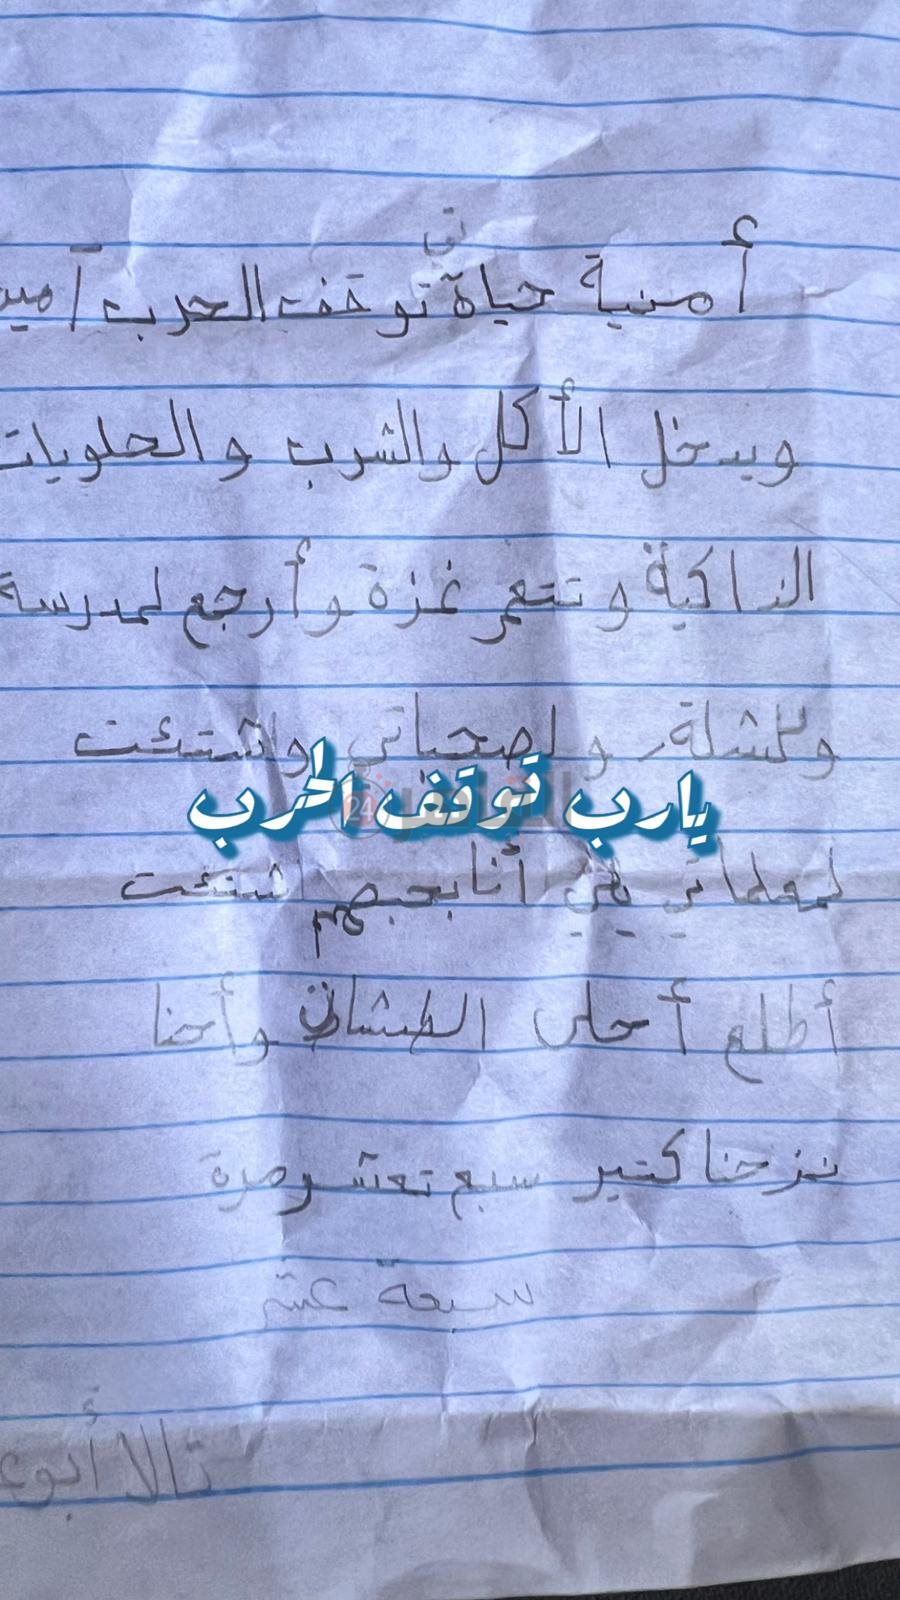 تي
أمنية حياة توقف الحرب آمين
ويدخل الأكل والشرب والحلويات
الزاكية وتتعمر غزة وأرجع لمدرسة
وللشلة ولصحباتي واشتئت
يارب توقف الحرب
24
لمعلماتي يلي أنا بحبهم اشتئت
أطلع أحلى الطشات وأحنا
نزحنا كتير سبع تعشر مرة
سبعة عشر
تالا أبو